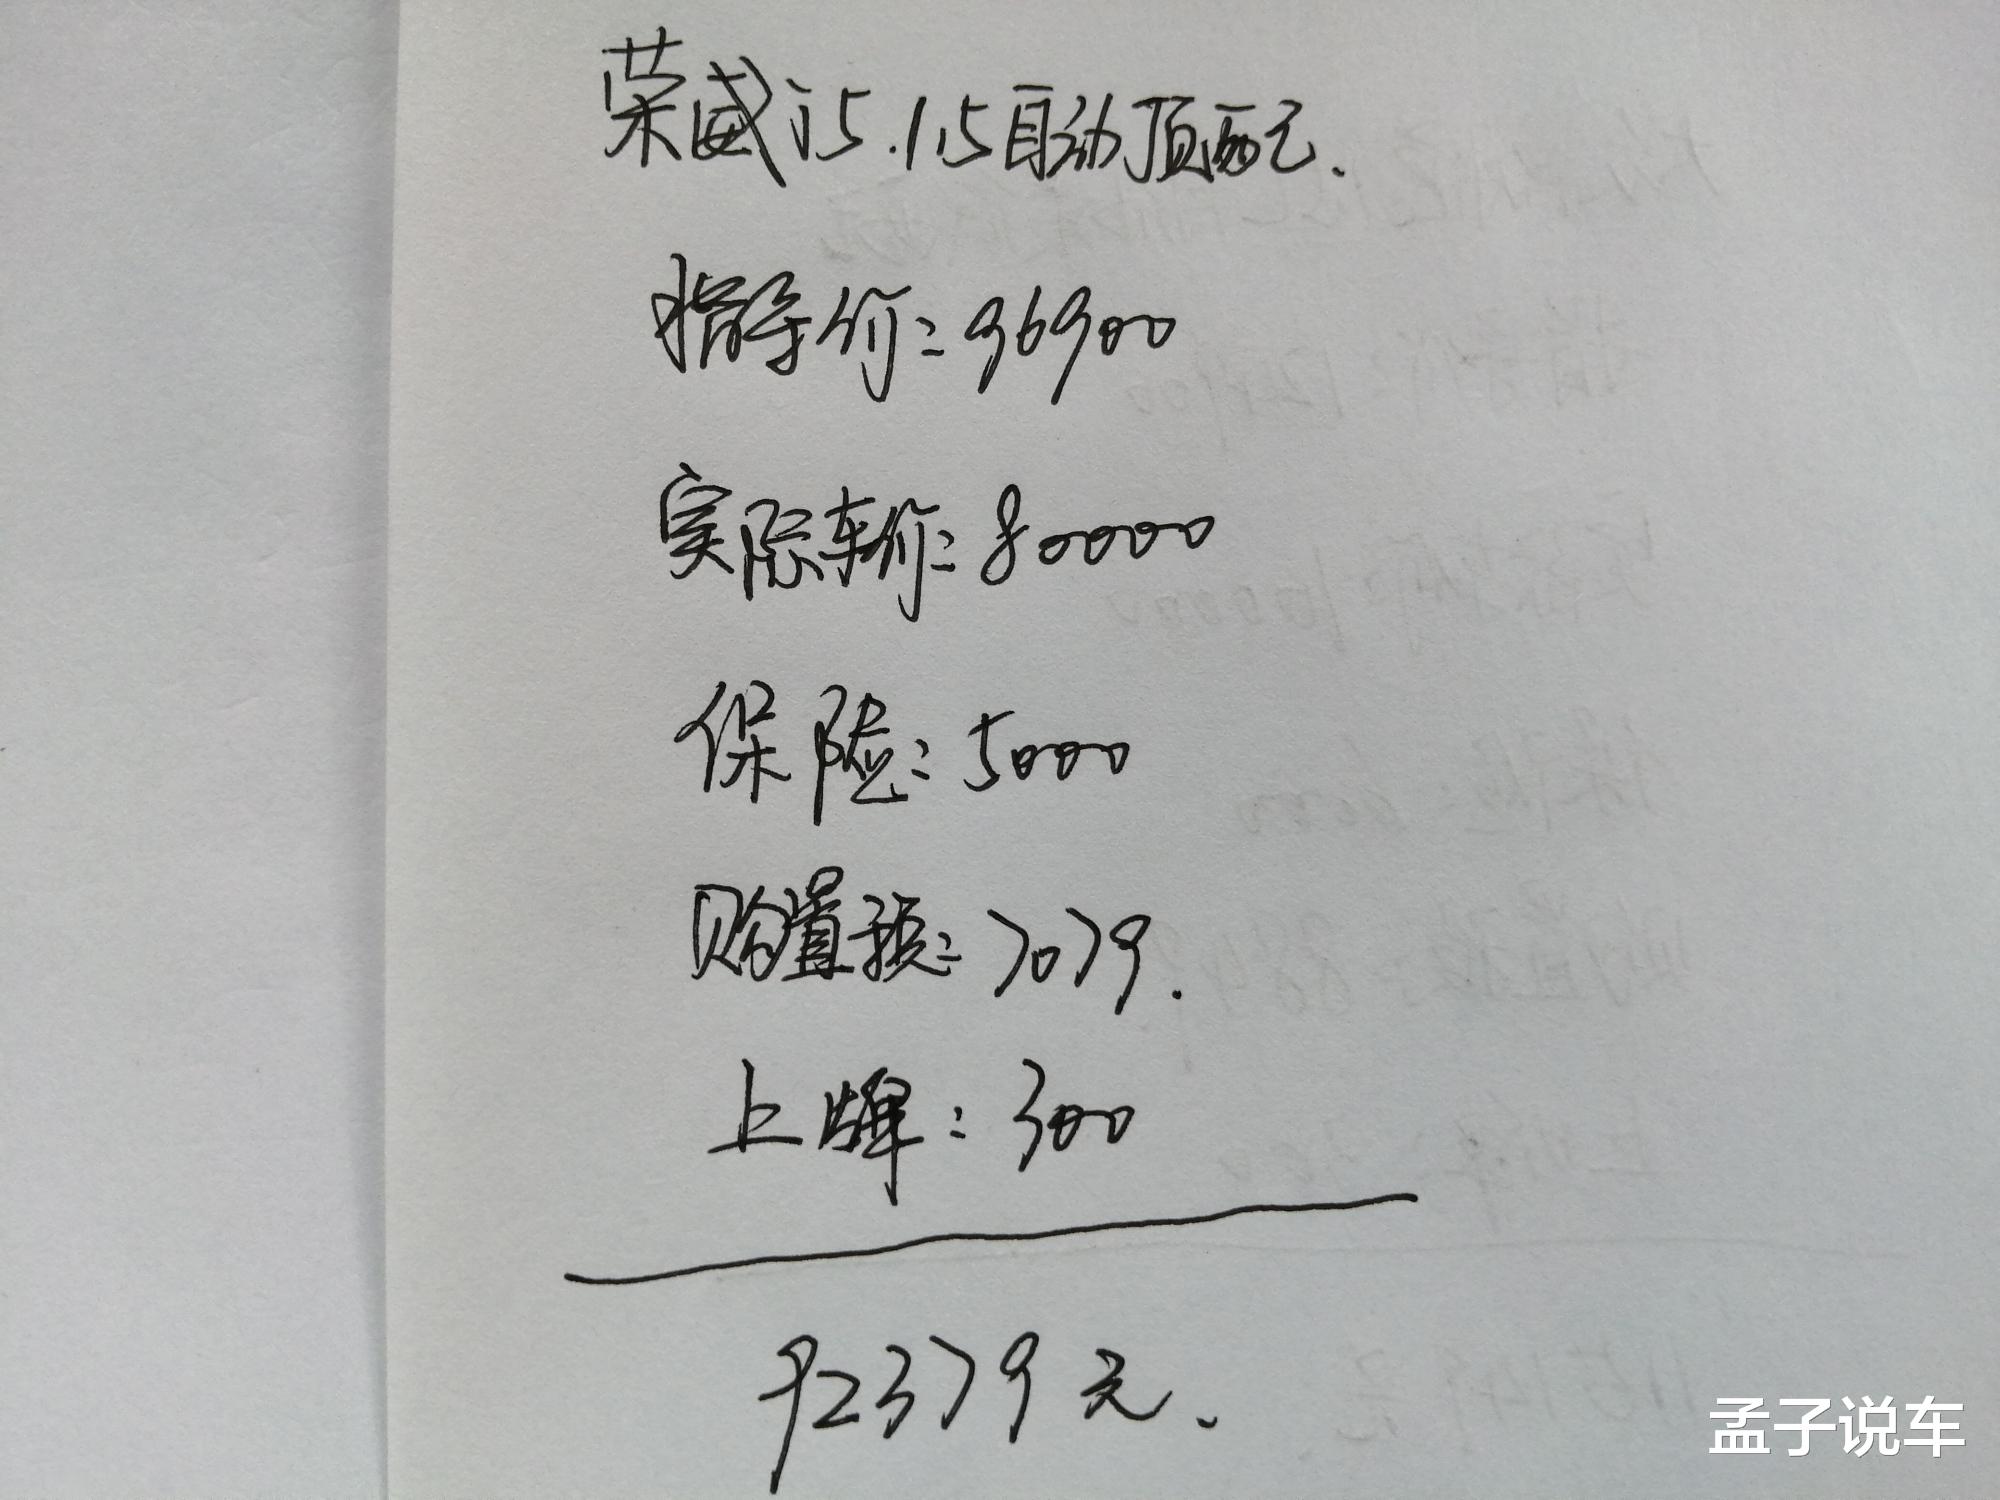 荣威i5.1.5自动顶配
指导价:96900
实际车价:80000
保险:5000
购置税:7079.
上牌:300
92379元.
孟子说车